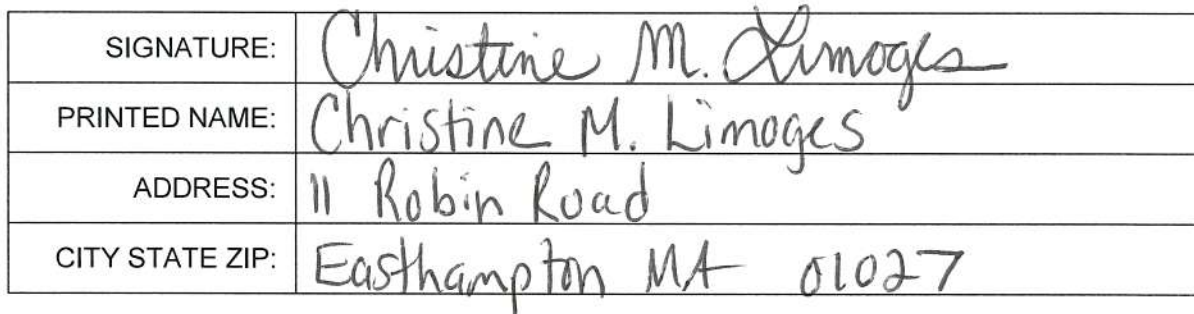 SIGNATURE: Christine M. Limoges
PRINTED NAME: Christine M. Limoges
ADDRESS: 11 Robin Road
CITY STATE ZIP: Easthampton MA 01027